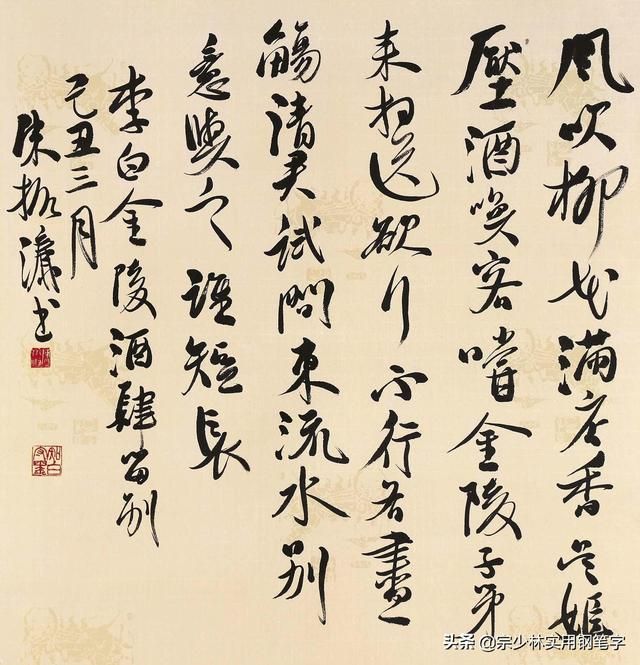 風吹柳花滿店香吳姬
壓酒喚客嘗金陵子弟
来相送欲行不行各盡
觴請君試問東流水別
意與之誰短長
李白金陵酒肆留別
己丑三月
陳振濂书
头条 @宗少林实用钢笔字